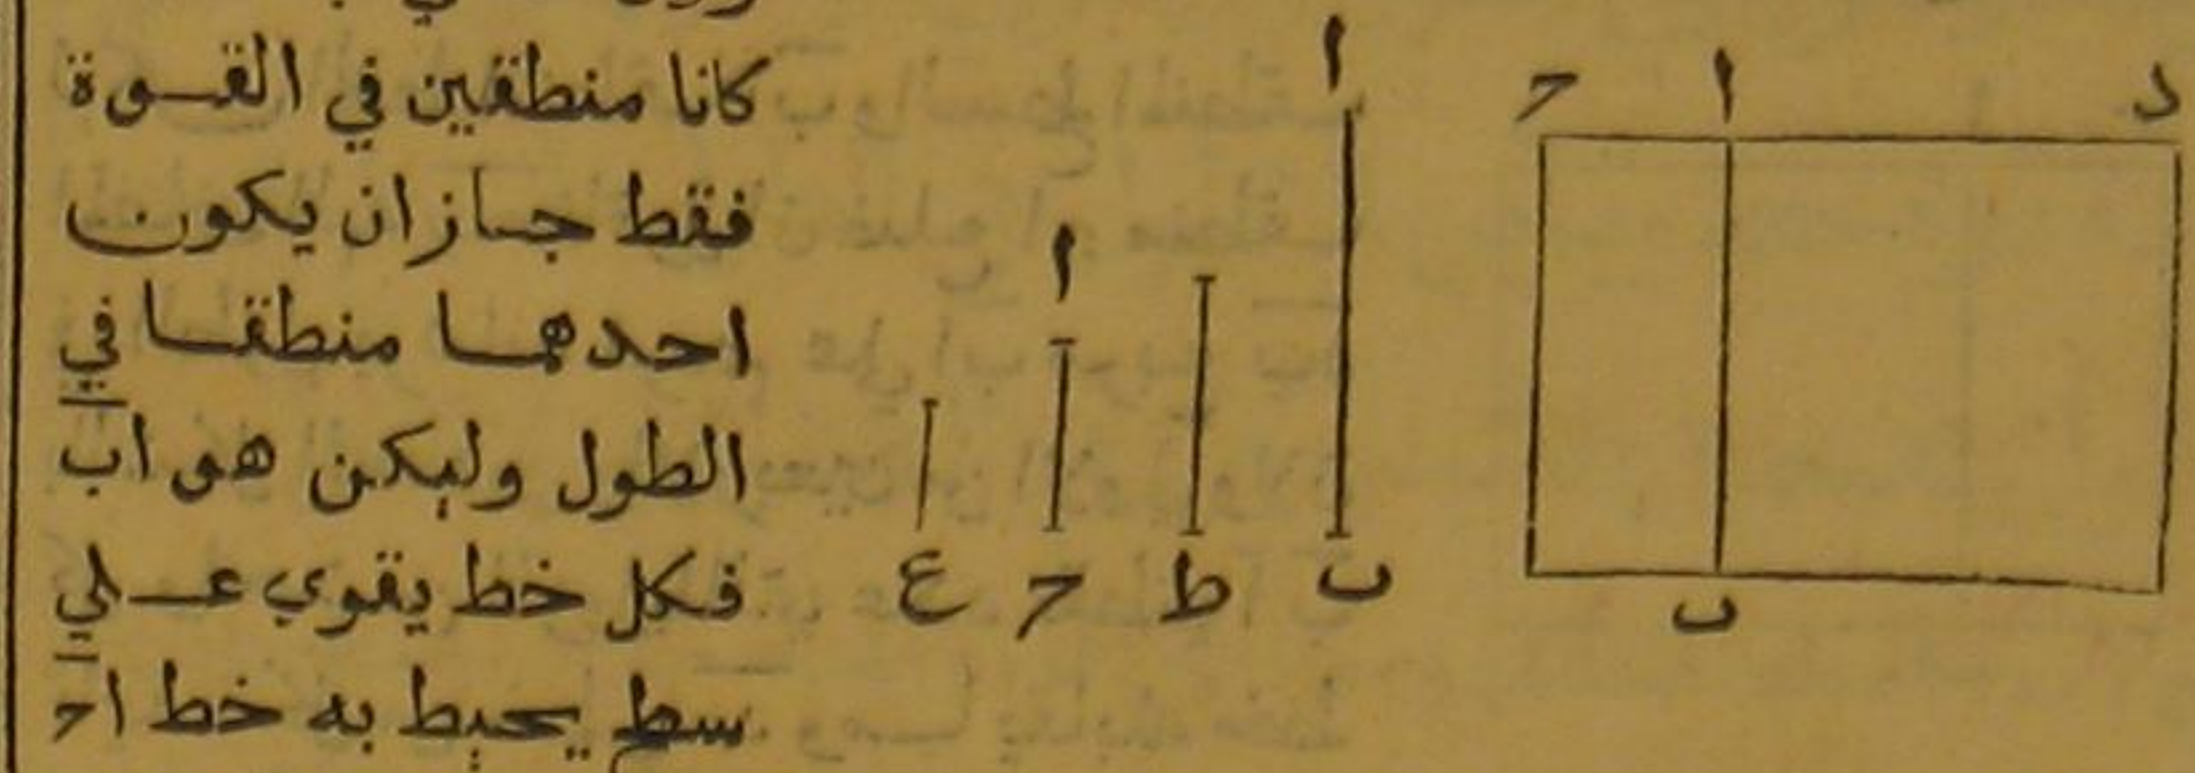 كانا منطقين في القوة
فقط جازان يكون
احدهما منطقا في
الطول وليكن هو اب
فكل خط يقوي علي
سطح يحيط به خط اح
ا
ا
ب
ط
ح
ع
د
ا
ح
ب